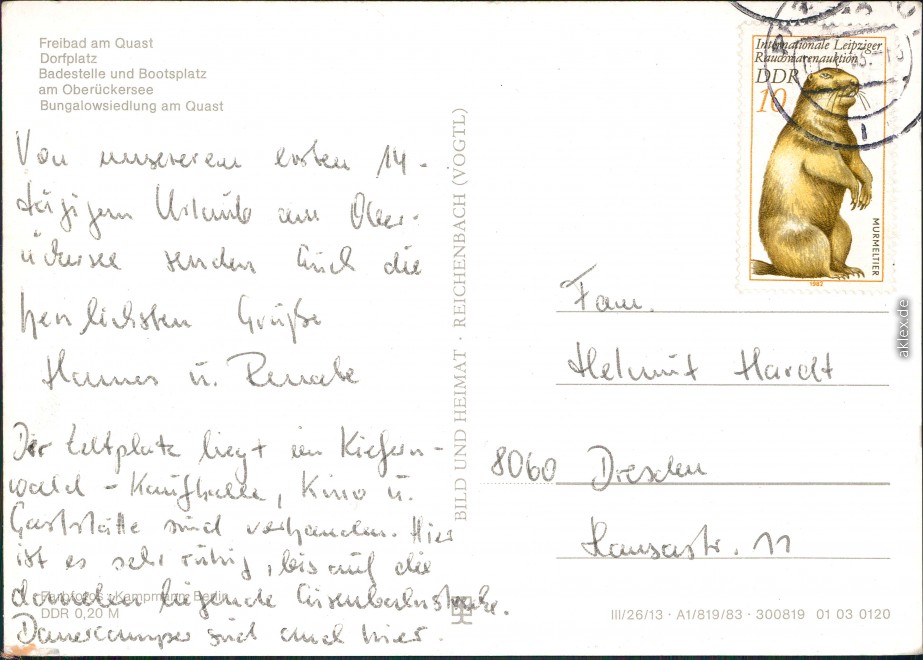 Freibad am Quast
Dorfplatz
Badestelle und Bootsplatz
am Oberückersee
Bungalowsiedlung am Quast
Von unsererem ersten 14-
tägigem Urlaub am Ober-
ückersee senden Euch die
herzlichsten Grüße
Hannes u. Renate
Der Zeltplatz liegt im Kiefern-
wald - Kaufhalle, Kino u.
Gaststätte sind vorhanden. Hier
ist es sehr ruhig, bis auf die
daneben liegende Eisenbahnstrecke.
Dauercamper sind auch hier.
Farbfotos: Kampmann, Berlin
DDR 0,20 M
BILD UND HEIMAT · REICHENBACH (VOGTL)
Internationale Leipziger
Rauchwarenauktion
DDR
10
MURMELTIER
1982
Fam.
Helmut Hardt
8060 Dresden
Hansastr. 11
III/26/13 · A1/819/83 · 300819 01 03 0120
aklex.de